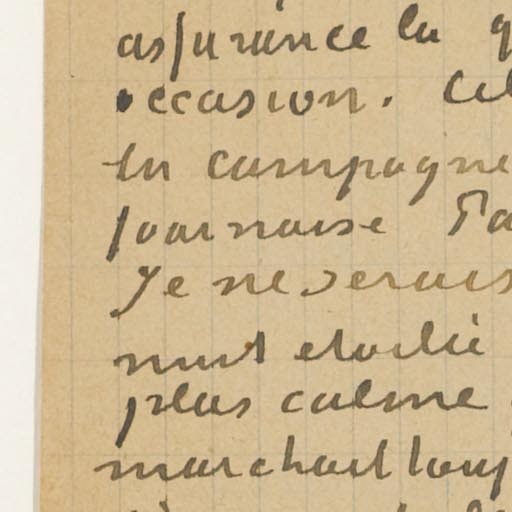 assurance la
occasion.
la campagne
journaise
Je ne serais
nuit etoilé
plus calme
marchait